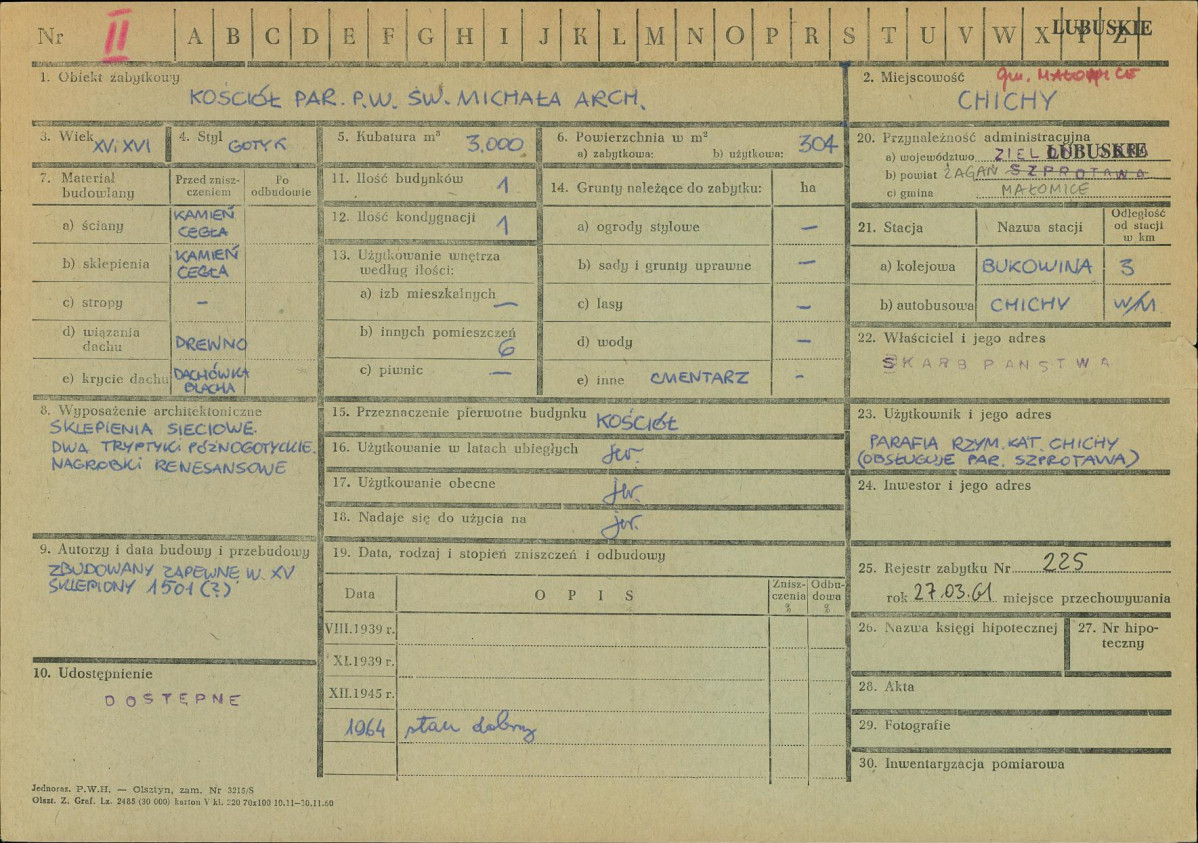 Nr II A B C D E F G H I J K L M N O P R S T U V W X Y Z LUBUSKIE
1. Obiekt zabytkowy
KOŚCIÓŁ PAR. P.W. ŚW. MICHAŁA ARCH.
2. Miejscowość gm. MAŁOMICE
CHICHY
3. Wiek XV i XVI
4. Styl GOTYK
5. Kubatura m³ 3.000
6. Powierzchnia w m² 304
a) zabytkowa: b) użytkowa:
7. Materiał budowlany
Przed zniszczeniem
Po odbudowie
a) ściany KAMIEŃ CEGŁA
b) sklepienia KAMIEŃ CEGŁA
c) stropy –
d) wiązania dachu DREWNO
e) krycie dachu DACHÓWKA BLACHA
8. Wyposażenie architektoniczne
SKLEPIENIA SIECIOWE.
DWA TRYPTYKI PÓŹNOGOTYCKIE.
NAGROBKI RENESANSOWE
9. Autorzy i data budowy i przebudowy
ZBUDOWANY ZAPEWNE W. XV
SKLEPIONY 1501 (?)
10. Udostępnienie
DOSTĘPNE
11. Ilość budynków 1
12. Ilość kondygnacji 1
13. Użytkowanie wnętrza
według ilości:
a) izb mieszkalnych –
b) innych pomieszczeń 6
c) piwnic –
14. Grunty należące do zabytku: ha
a) ogrody stylowe –
b) sady i grunty uprawne –
c) lasy –
d) wody –
e) inne CMENTARZ –
15. Przeznaczenie pierwotne budynku KOŚCIÓŁ
16. Użytkowanie w latach ubiegłych jw.
17. Użytkowanie obecne jw.
18. Nadaje się do użycia na jw.
19. Data, rodzaj i stopień zniszczeń i odbudowy
Data OPIS Zniszczenia % Odbudowa %
VIII.1939 r.
XI.1939 r.
XII.1945 r.
1964 stan dobry
20. Przynależność administracyjna
a) województwo LUBUSKIE
b) powiat ŻAGAŃ SZPROTAWA
c) gmina MAŁOMICE
21. Stacja Nazwa stacji Odległość od stacji w km
a) kolejowa BUKOWINA 3
b) autobusowa CHICHY W/M
22. Właściciel i jego adres
SKARB PAŃSTWA
23. Użytkownik i jego adres
PARAFIA RZYM. KAT. CHICHY
(OBSŁUGUJE PAR. SZPROTAWA)
24. Inwestor i jego adres
25. Rejestr zabytku Nr 225
rok 27.03.61 miejsce przechowywania
26. Nazwa księgi hipotecznej
27. Nr hipoteczny
28. Akta
29. Fotografie
30. Inwentaryzacja pomiarowa
Jednoraz. P.W.H. — Olsztyn, zam. Nr 3215/S
Olszt. Z. Graf. Lz. 2485 (30 000) karton V kl. 220 70x100 10.11—30.11.60